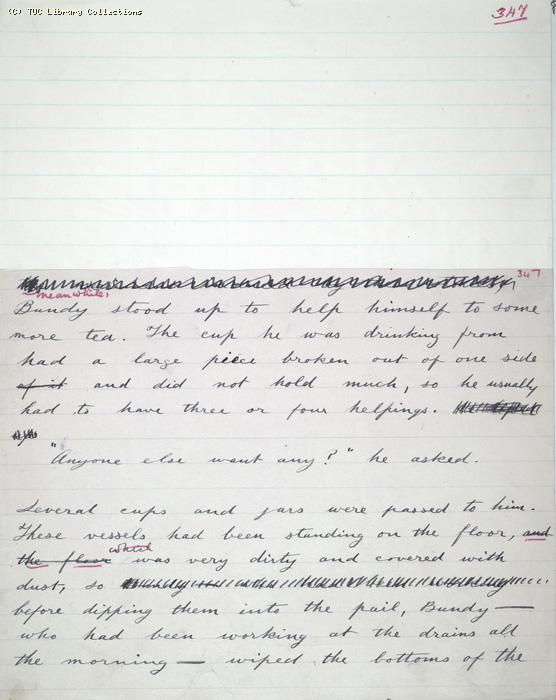 (C) TUC Library Collections
347
347
meanwhile,
Bundy stood up to help himself to some
more tea. The cup he was drinking from
had a large piece broken out of one side
of it and did not hold much, so he usually
had to have three or four helpings.
"Anyone else want any?" he asked.
Several cups and jars were passed to him.
These vessels had been standing on the floor, and
which
the floor was very dirty and covered with
dust, so
before dipping them into the pail, Bundy —
who had been working at the drains all
the morning — wiped the bottoms of the